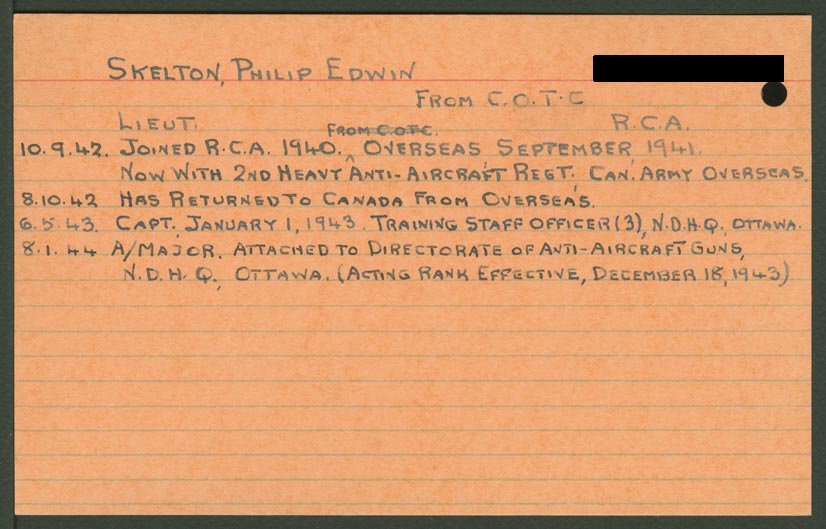 SKELTON, PHILIP EDWIN
FROM C.O.T.C
LIEUT. FROM C.O.T.C. R.C.A.
10.9.42. JOINED R.C.A. 1940. ^ OVERSEAS SEPTEMBER, 1941.
NOW WITH 2ND HEAVY ANTI-AIRCRAFT REGT. CAN. ARMY OVERSEAS.
8.10.42 HAS RETURNED TO CANADA FROM OVERSEAS.
6.5.43. CAPT. JANUARY 1, 1943. TRAINING STAFF OFFICER (3), N.D.H.Q. OTTAWA.
8.1.44 A/MAJOR. ATTACHED TO DIRECTORATE OF ANTI-AIRCRAFT GUNS,
N.D.H.Q., OTTAWA. (ACTING RANK EFFECTIVE, DECEMBER 18, 1943)